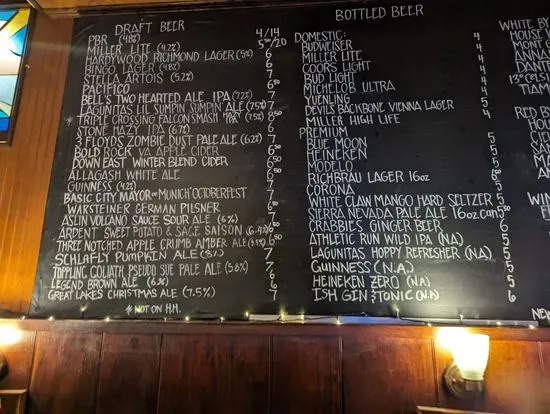 DRAFT BEER
4/14
PBR (4.8%)
MILLER LITE (4.2%) 5⁰⁰/20
HARDYWOOD RICHMOND LAGER (5%) 6
BINGO LAGER (4.8%)
STELLA ARTOIS (5.2%) 7
PACIFICO 6⁵⁰
BELL'S TWO HEARTED ALE IPA (7%) 7
LAGUNITAS LIL SUMPIN' SUMPIN' ALE (7.5%) 7
*TRIPLE CROSSING FALCON SMASH "IPA" (7%) 8⁵⁰
STONE HAZY IPA (6.7%) 7
3 FLOYDS ZOMBIE DUST PALE ALE (6.2%) 7
BOLD ROCK VA APPLE CIDER 6
DOWN EAST WINTER BLEND CIDER 6⁵⁰
ALLAGASH WHITE ALE 7
GUINNESS (4.2%) 7
BASIC CITY MAYOR OF MUNICH OCTOBERFEST 7
WARSTEINER GERMAN PILSNER 6⁵⁰
ASLIN VOLCANO SAUCE SOUR ALE (6%) 7
ARDENT SWEET POTATO & SAGE SAISON (6.4%) 6⁵⁰
THREE NOTCHED APPLE CRUMB AMBER ALE 6⁵⁰
SCHLAFLY PUMPKIN ALE (8%) 7
TOPPLING GOLIATH PSEUDO SUE PALE ALE (5.8%) 7
LEGEND BROWN ALE (6%) 6
GREAT LAKES CHRISTMAS ALE (7.5%) 7
*NOT ON H.H.
BOTTLED BEER
DOMESTIC:
BUDWEISER 4
MILLER LITE 4
COORS LIGHT 4
BUD LIGHT 4
MICHELOB ULTRA 4
YUENLING 4
DEVILS BACKBONE VIENNA LAGER 5
MILLER HIGH LIFE 4
PREMIUM
BLUE MOON 5
HEINEKEN 5
MODELO 5
RICHBRAU LAGER 16oz 6⁰⁰
CORONA 5
WHITE CLAW MANGO HARD SELTZER 5
SIERRA NEVADA PALE ALE 16oz can 5⁵⁰
CRABBIES GINGER BEER 6
ATHLETIC RUN WILD IPA (NA) 5
LAGUNITAS HOPPY REFRESHER (NA) 5
GUINNESS (N.A.) 5
HEINEKEN ZERO (N.A) 5
ISH GIN & TONIC (N.A) 6
WHITE BY
HOUSE
MONT
ANNA
DANTE
13° CELS
TIAM
RED BY
HOUSE